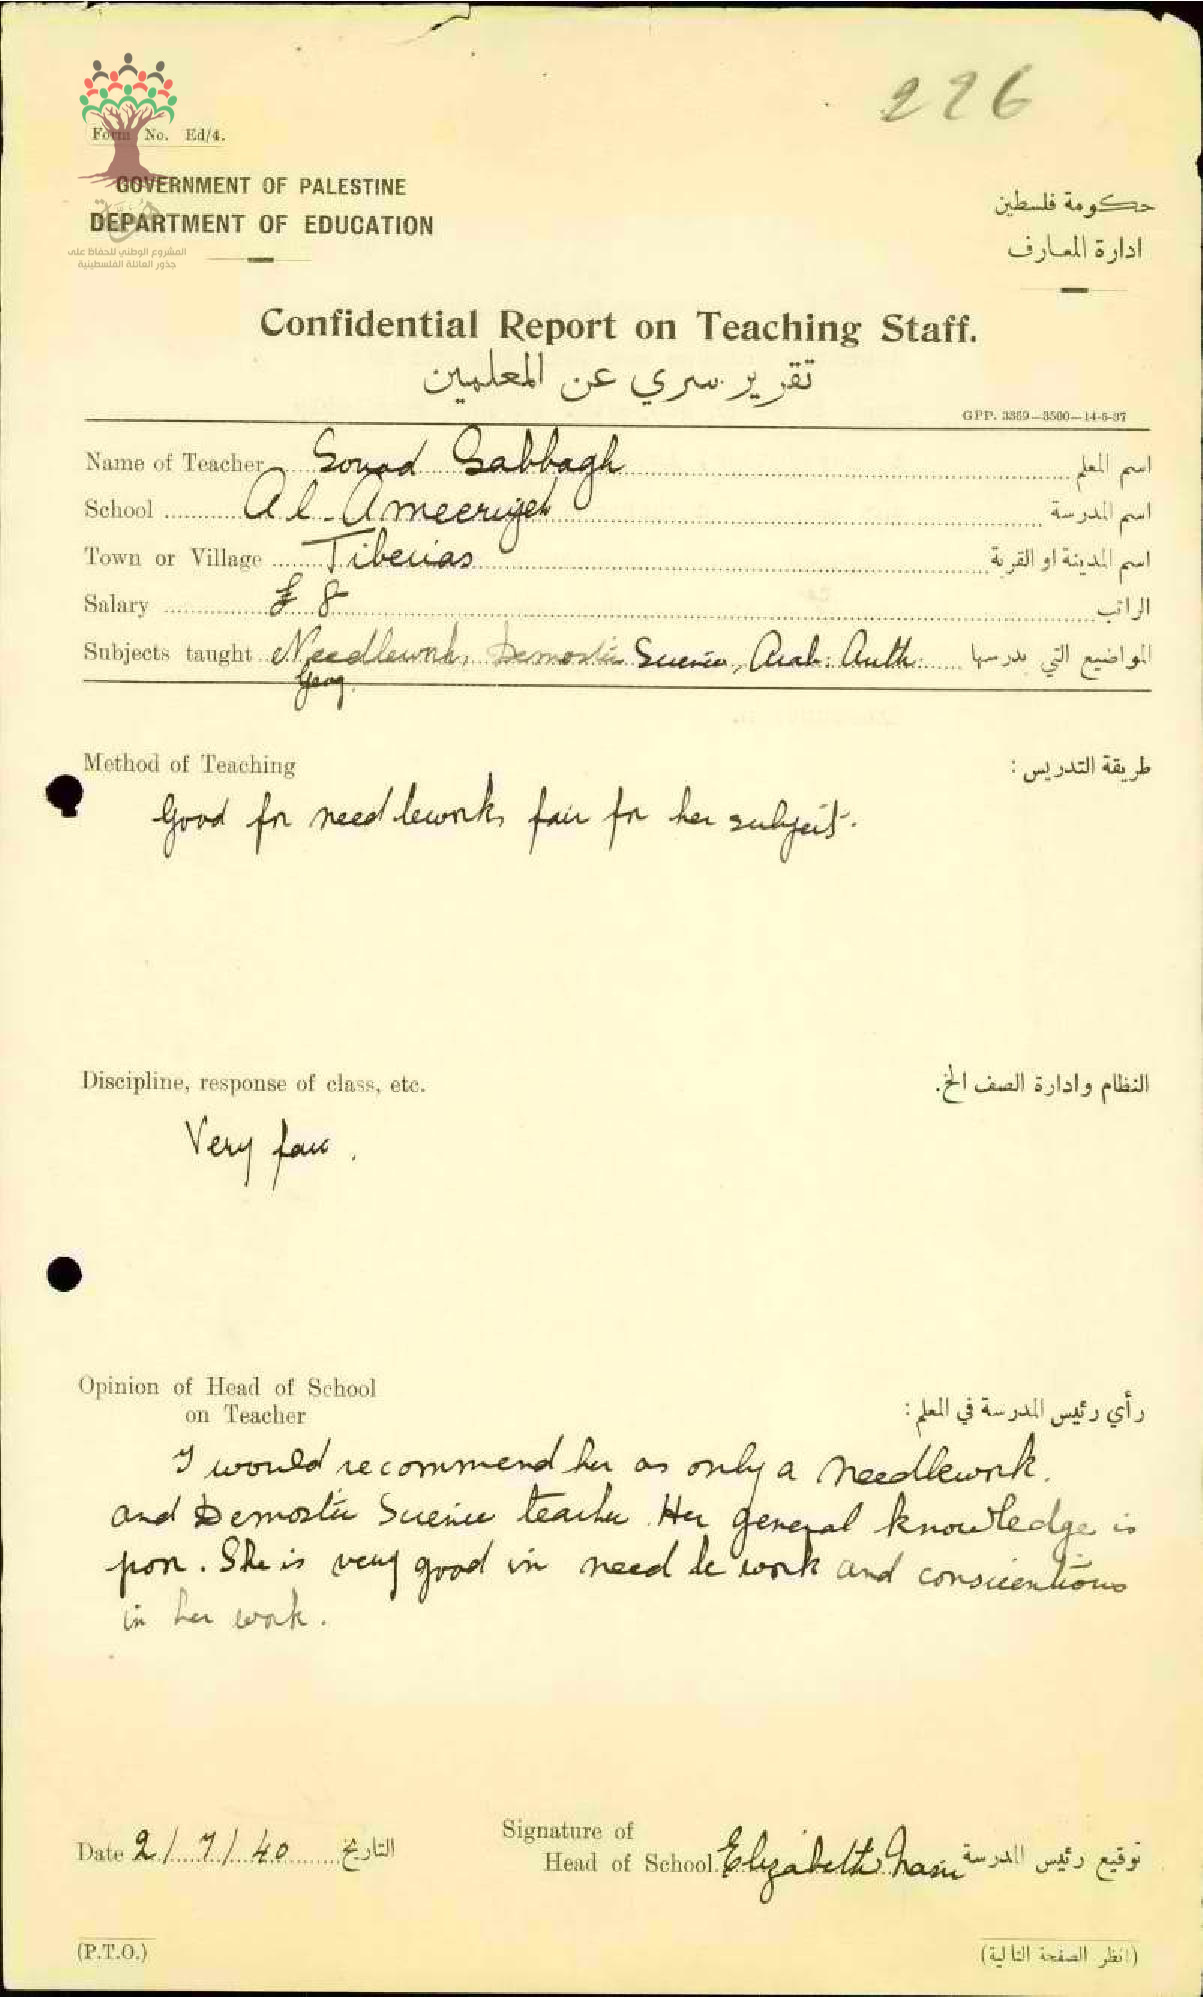 226
Form No. Ed/4.
GOVERNMENT OF PALESTINE
DEPARTMENT OF EDUCATION
حكومة فلسطين
ادارة المعارف
هوية
المشروع الوطني للحفاظ على
جذور العائلة الفلسطينية
Confidential Report on Teaching Staff.
تقرير سري عن المعلمين
GPP. 3369—3500—14-6-37
Name of Teacher Souad Sabbagh اسم المعلم
School Al-Ameeriyeh اسم المدرسة
Town or Village Tiberias اسم المدينة او القرية
Salary £ 8 الراتب
Subjects taught Needlework, Demostic Science, Arab: Arith. المواضيع التي يدرسها
Geog.
Method of Teaching طريقة التدريس :
Good for needlework, fair for her subject.
Discipline, response of class, etc. النظام وادارة الصف الخ.
Very fair.
Opinion of Head of School
on Teacher رأي رئيس المدرسة في المعلم :
I would recommend her as only a needlework.
and Demostic Science teacher. Her general knowledge is
poor. She is very good in needlework and conscientious
in her work.
Date 2/7/40 التاريخ
Signature of
Head of School Elizabeth Nasir توقيع رئيس المدرسة
(P.T.O.) (انظر الصفحة التالية)